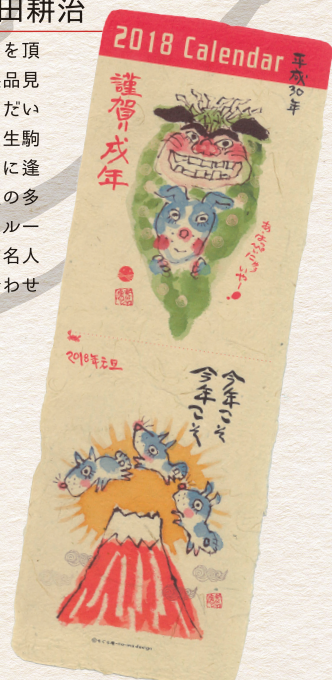 田耕治
を頂
品見
だい
生駒
に逢
の多
ルー
名人
わせ
2018 Calendar
平成30年
謹賀戌年
2018年元旦
今年こそ
今年こそ